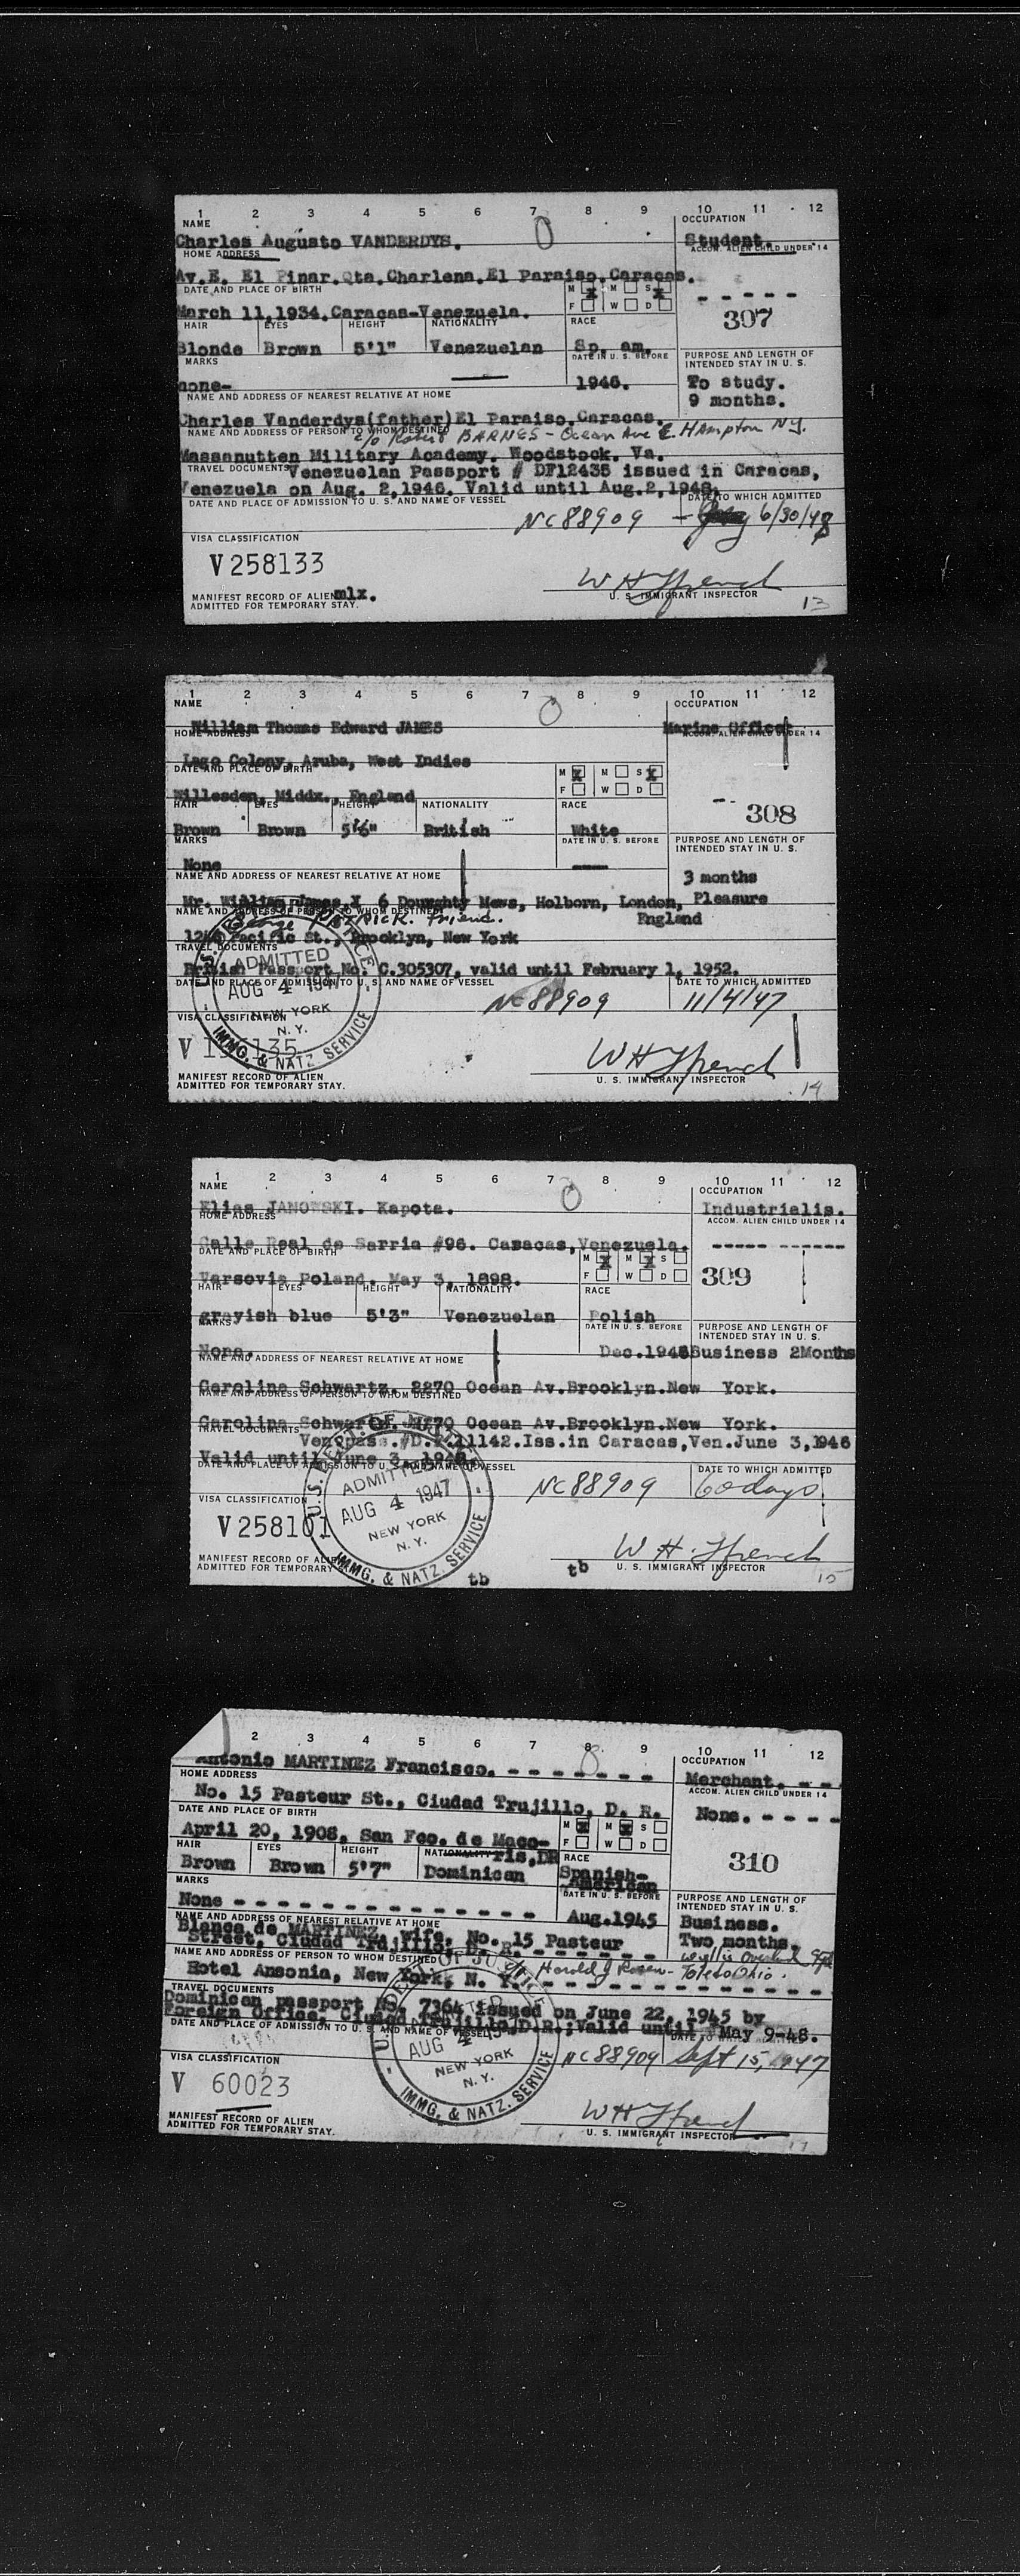 1 2 3 4 5 6 7 8 9 10 11 12
NAME OCCUPATION
Charles Augusto VANDERDYS. Student.
HOME ADDRESS ACCOM. ALIEN CHILD UNDER 14
Av.E. El Pinar.Qta.Charlena.El Paraiso.Caracas.
DATE AND PLACE OF BIRTH M X M S X - - - - -
March 11,1934.Caracas-Venezuela. F W D 307
HAIR EYES HEIGHT NATIONALITY RACE
Blonde Brown 5'1" Venezuelan Sp. am.
MARKS DATE IN U. S. BEFORE PURPOSE AND LENGTH OF INTENDED STAY IN U. S.
none- 1946. To study.
9 months.
NAME AND ADDRESS OF NEAREST RELATIVE AT HOME
Charles Vanderdys(father)El Paraiso.Caracas.
NAME AND ADDRESS OF PERSON TO WHOM DESTINED
c/o Robert BARNES - Ocean Ave E. Hampton NY.
Massanutten Military Academy. Woodstock. Va.
TRAVEL DOCUMENTS Venezuelan Passport # DF12435 issued in Caracas,
Venezuela on Aug. 2,1946. Valid until Aug.2,1948.
DATE AND PLACE OF ADMISSION TO U. S. AND NAME OF VESSEL DATE TO WHICH ADMITTED
NC88909 6/30/48
VISA CLASSIFICATION
V 258133
W H Ffrench
MANIFEST RECORD OF ALIEN mlx. U. S. IMMIGRANT INSPECTOR
ADMITTED FOR TEMPORARY STAY. 13
1 2 3 4 5 6 7 8 9 10 11 12
NAME OCCUPATION
William Thomas Edward JAMES Marine Officer
HOME ADDRESS ACCOM. ALIEN CHILD UNDER 14
Lago Colony, Aruba, West Indies
DATE AND PLACE OF BIRTH M X M S X
Willesden, Middx., England F W D -- 308
HAIR EYES HEIGHT NATIONALITY RACE
Brown Brown 5'6" British White
MARKS DATE IN U. S. BEFORE PURPOSE AND LENGTH OF INTENDED STAY IN U. S.
None
NAME AND ADDRESS OF NEAREST RELATIVE AT HOME 3 months
Mr. William James, 6 Doughty Mews, Holborn, London, Pleasure
England
NAME AND ADDRESS OF PERSON TO WHOM DESTINED
George friend.
Pacific St., Brooklyn, New York
TRAVEL DOCUMENTS
British Passport No. C.305307, valid until February 1, 1952.
DATE AND PLACE OF ADMISSION TO U. S. AND NAME OF VESSEL DATE TO WHICH ADMITTED
NC88909 11/4/47
ADMITTED
AUG 4 1947
NEW YORK
N. Y.
IMMG. & NATZ. SERVICE
VISA CLASSIFICATION
V
W H Ffrench
MANIFEST RECORD OF ALIEN U. S. IMMIGRANT INSPECTOR
ADMITTED FOR TEMPORARY STAY. 14
1 2 3 4 5 6 7 8 9 10 11 12
NAME OCCUPATION
Elias JANOWSKI. Kapota. Industrialis.
HOME ADDRESS ACCOM. ALIEN CHILD UNDER 14
Calle Real de Sarria #96. Caracas,Venezuela. -----------
DATE AND PLACE OF BIRTH M X M X S
Varsovia Poland. May 3, 1898. F W D 309
HAIR EYES HEIGHT NATIONALITY RACE
grayish blue 5'3" Venezuelan Polish
MARKS DATE IN U. S. BEFORE PURPOSE AND LENGTH OF INTENDED STAY IN U. S.
None. Dec.1946 Business 2Months
NAME AND ADDRESS OF NEAREST RELATIVE AT HOME
Carolina Schwartz. 2270 Ocean Av.Brooklyn.New York.
NAME AND ADDRESS OF PERSON TO WHOM DESTINED
Carolina Schwartz. 2270 Ocean Av.Brooklyn.New York.
TRAVEL DOCUMENTS Ven.pass.#D.F.11142.Iss.in Caracas,Ven.June 3,1946
Valid until June 3, 1948.
DATE AND PLACE OF ADMISSION TO U. S. AND NAME OF VESSEL DATE TO WHICH ADMITTED
NC88909 60 days
U.S. DEPT. OF JUSTICE
ADMITTED
AUG 4 1947
NEW YORK
N. Y.
IMMG. & NATZ. SERVICE
VISA CLASSIFICATION
V 258101
W. H. Ffrench
MANIFEST RECORD OF ALIEN tb tb U. S. IMMIGRANT INSPECTOR
ADMITTED FOR TEMPORARY 15
2 3 4 5 6 7 8 9 10 11 12
OCCUPATION
Antonio MARTINEZ Francisco. - - - - - - - Merchant. - -
HOME ADDRESS ACCOM. ALIEN CHILD UNDER 14
No. 15 Pasteur St., Ciudad Trujillo, D. R. None. - - - -
DATE AND PLACE OF BIRTH M X M X S
April 20, 1908, San Fco. de Maco- F W D
HAIR EYES HEIGHT NATIONALITY ris,DR RACE 310
Brown Brown 5'7" Dominican Spanish-
American
MARKS DATE IN U. S. BEFORE PURPOSE AND LENGTH OF INTENDED STAY IN U. S.
None - - - - - - - - - - - - - - Aug.1945 Business.
NAME AND ADDRESS OF NEAREST RELATIVE AT HOME Two months.
Blanca de MARTINEZ, wife, No. 15 Pasteur
Street, Ciudad Trujillo, D. R. - - - - - - Willys Overland
NAME AND ADDRESS OF PERSON TO WHOM DESTINED Harold J Rosen - Toledo Ohio.
Hotel Ansonia, New York, N. Y. - - - - - - - - - - - - -
TRAVEL DOCUMENTS
Dominican passport No. 7364 issued on June 22, 1945 by
Foreign Office, Ciudad Trujillo,D.R.;Valid until May 9-48.
DATE AND PLACE OF ADMISSION TO U. S. AND NAME OF VESSEL DATE TO WHICH ADMITTED
NC88909 Sept 15, 1947
AUG 4
NEW YORK
N. Y.
IMMG. & NATZ. SERVICE
VISA CLASSIFICATION
V 60023
W H Ffrench
MANIFEST RECORD OF ALIEN U. S. IMMIGRANT INSPECTOR
ADMITTED FOR TEMPORARY STAY. 17